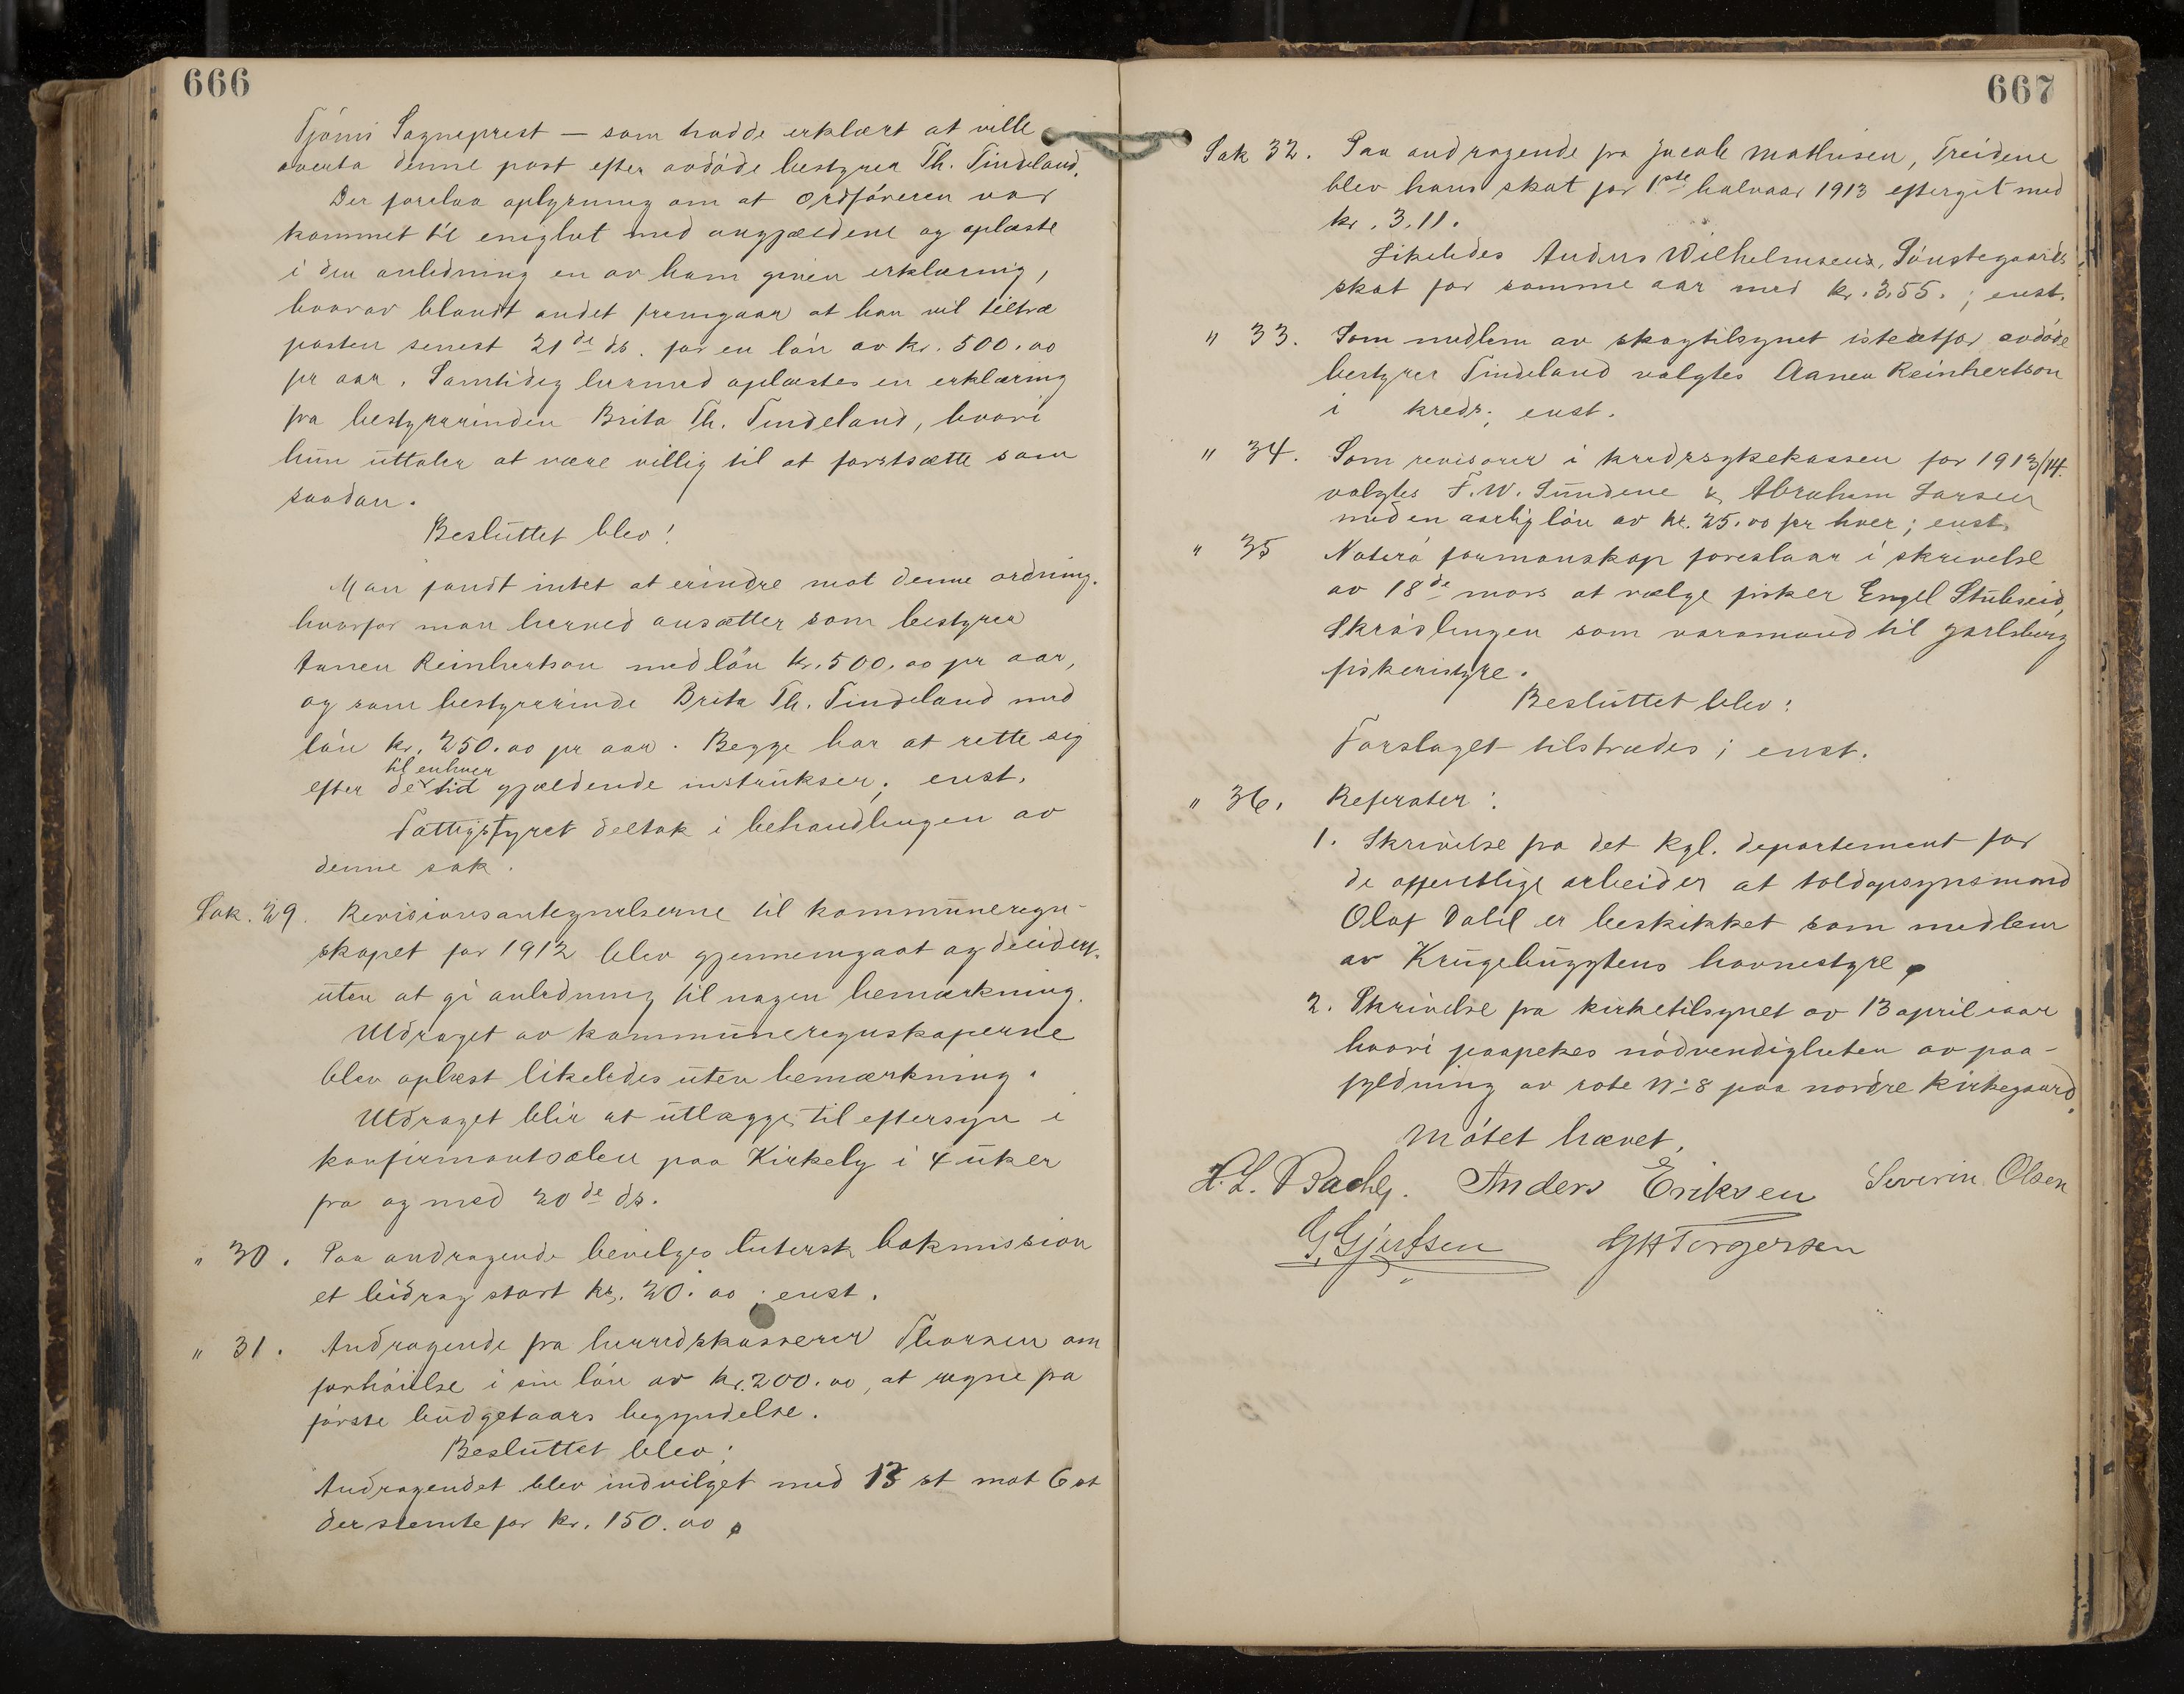 666
Tjømø Sogneprest — som hadde erklært at ville
overta denne post efter avdøde bestyrer Th. Tindeland.
Der forelaa oplysning om at ordføreren var
kommet til enighet med angjældene og oplæste
i den anledning en av ham given erklæring,
hvorav blandt andet fremgaar at han vil tiltræ
posten senest 21de ds. for en løn av kr. 500.00
pr aar. Samtidig hermed oplæstes en erklæring
fra bestyrerinden Brita Th. Tindeland, hvori
hun uttaler at være villig til at fortsætte som
saadan.
Besluttet blev:
Man fandt intet at erindre mot denne ordning.
hvorfor man herved ansætter som bestyrer
Aanen Reinhertson med løn kr. 500.00 pr aar,
og som bestyrerinde Brita Th. Tindeland med
løn kr. 250.00 pr aar. Begge har at rette sig
til enhver
efter de tid gjældende instrukser; enst.
Fattigstyret deltok i behandlingen av
denne sak.
Sak. 29. Revisionsantegnelserne til kommuneregn-
skapet for 1912 blev gjennemgaat og decidert.
uten at gi anledning til nogen bemærkning.
Utdraget av kommuneregnskaperne
blev oplæst likeledes uten bemærkning.
Utdraget blir at utlægge til eftersyn i
konfirmantsalen paa Kirkely i 4 uker
fra og med 20de ds.
" 30. Paa andragende bevilges lutersk bokmission
et bidrag stort kr. 20.00; enst.
" 31. Andragende fra herredskasserer Thorsen om
forhøielse i sin løn av kr. 200.00, at regne fra
første budgetaars begyndelse.
Besluttet blev:
Andragendet blev indvilget med 13 st mot 6 st
der stemte for kr. 150.00.
667
Sak 32. Paa andragende fra Jacob Mathisen, Treidene
blev hans skat for 1ste halvaar 1913 eftergit med
kr. 3.11.
Likeledes Anders Wilhelmsens, Sønstegaards
skat for samme aar med kr. 3.55.; enst.
" 33. Som medlem av skogtilsynet istedetfor avdøde
bestyrer Tindeland valgtes Aanen Reinhertson
i kreds; enst.
" 34. Som revisorer i kredssykekassen for 1913/14.
valgtes F. W. Sundene & Abraham Larsen
med en aarlig løn av kr. 25.00 pr hver; enst.
" 35 Nøterø formanskap foreslaar i skrivelse
av 18de mars at vælge fisker Engel Stubseid,
Skrøslingen som varamand til Jarlsberg
fiskeristyre.
Besluttet blev:
Forslaget tilstrædes; enst.
" 36. Referater:
1. Skrivelse fra det kgl. departement for
de offentlige arbeider at toldopsynsmand
Olaf Dahl er beskikket som medlem
av Krugebuggtens havnestyre.
2. Skrivelse fra kirketilsynet av 13 april iaar
hvori paapekes nødvendigheten av paa-
fyldning av rote No 8 paa nordre kirkegaard.
Møtet hævet.
H. L. Bache. Anders Eriksen Severin Olsen
G. Gjertsen G H Torgersen